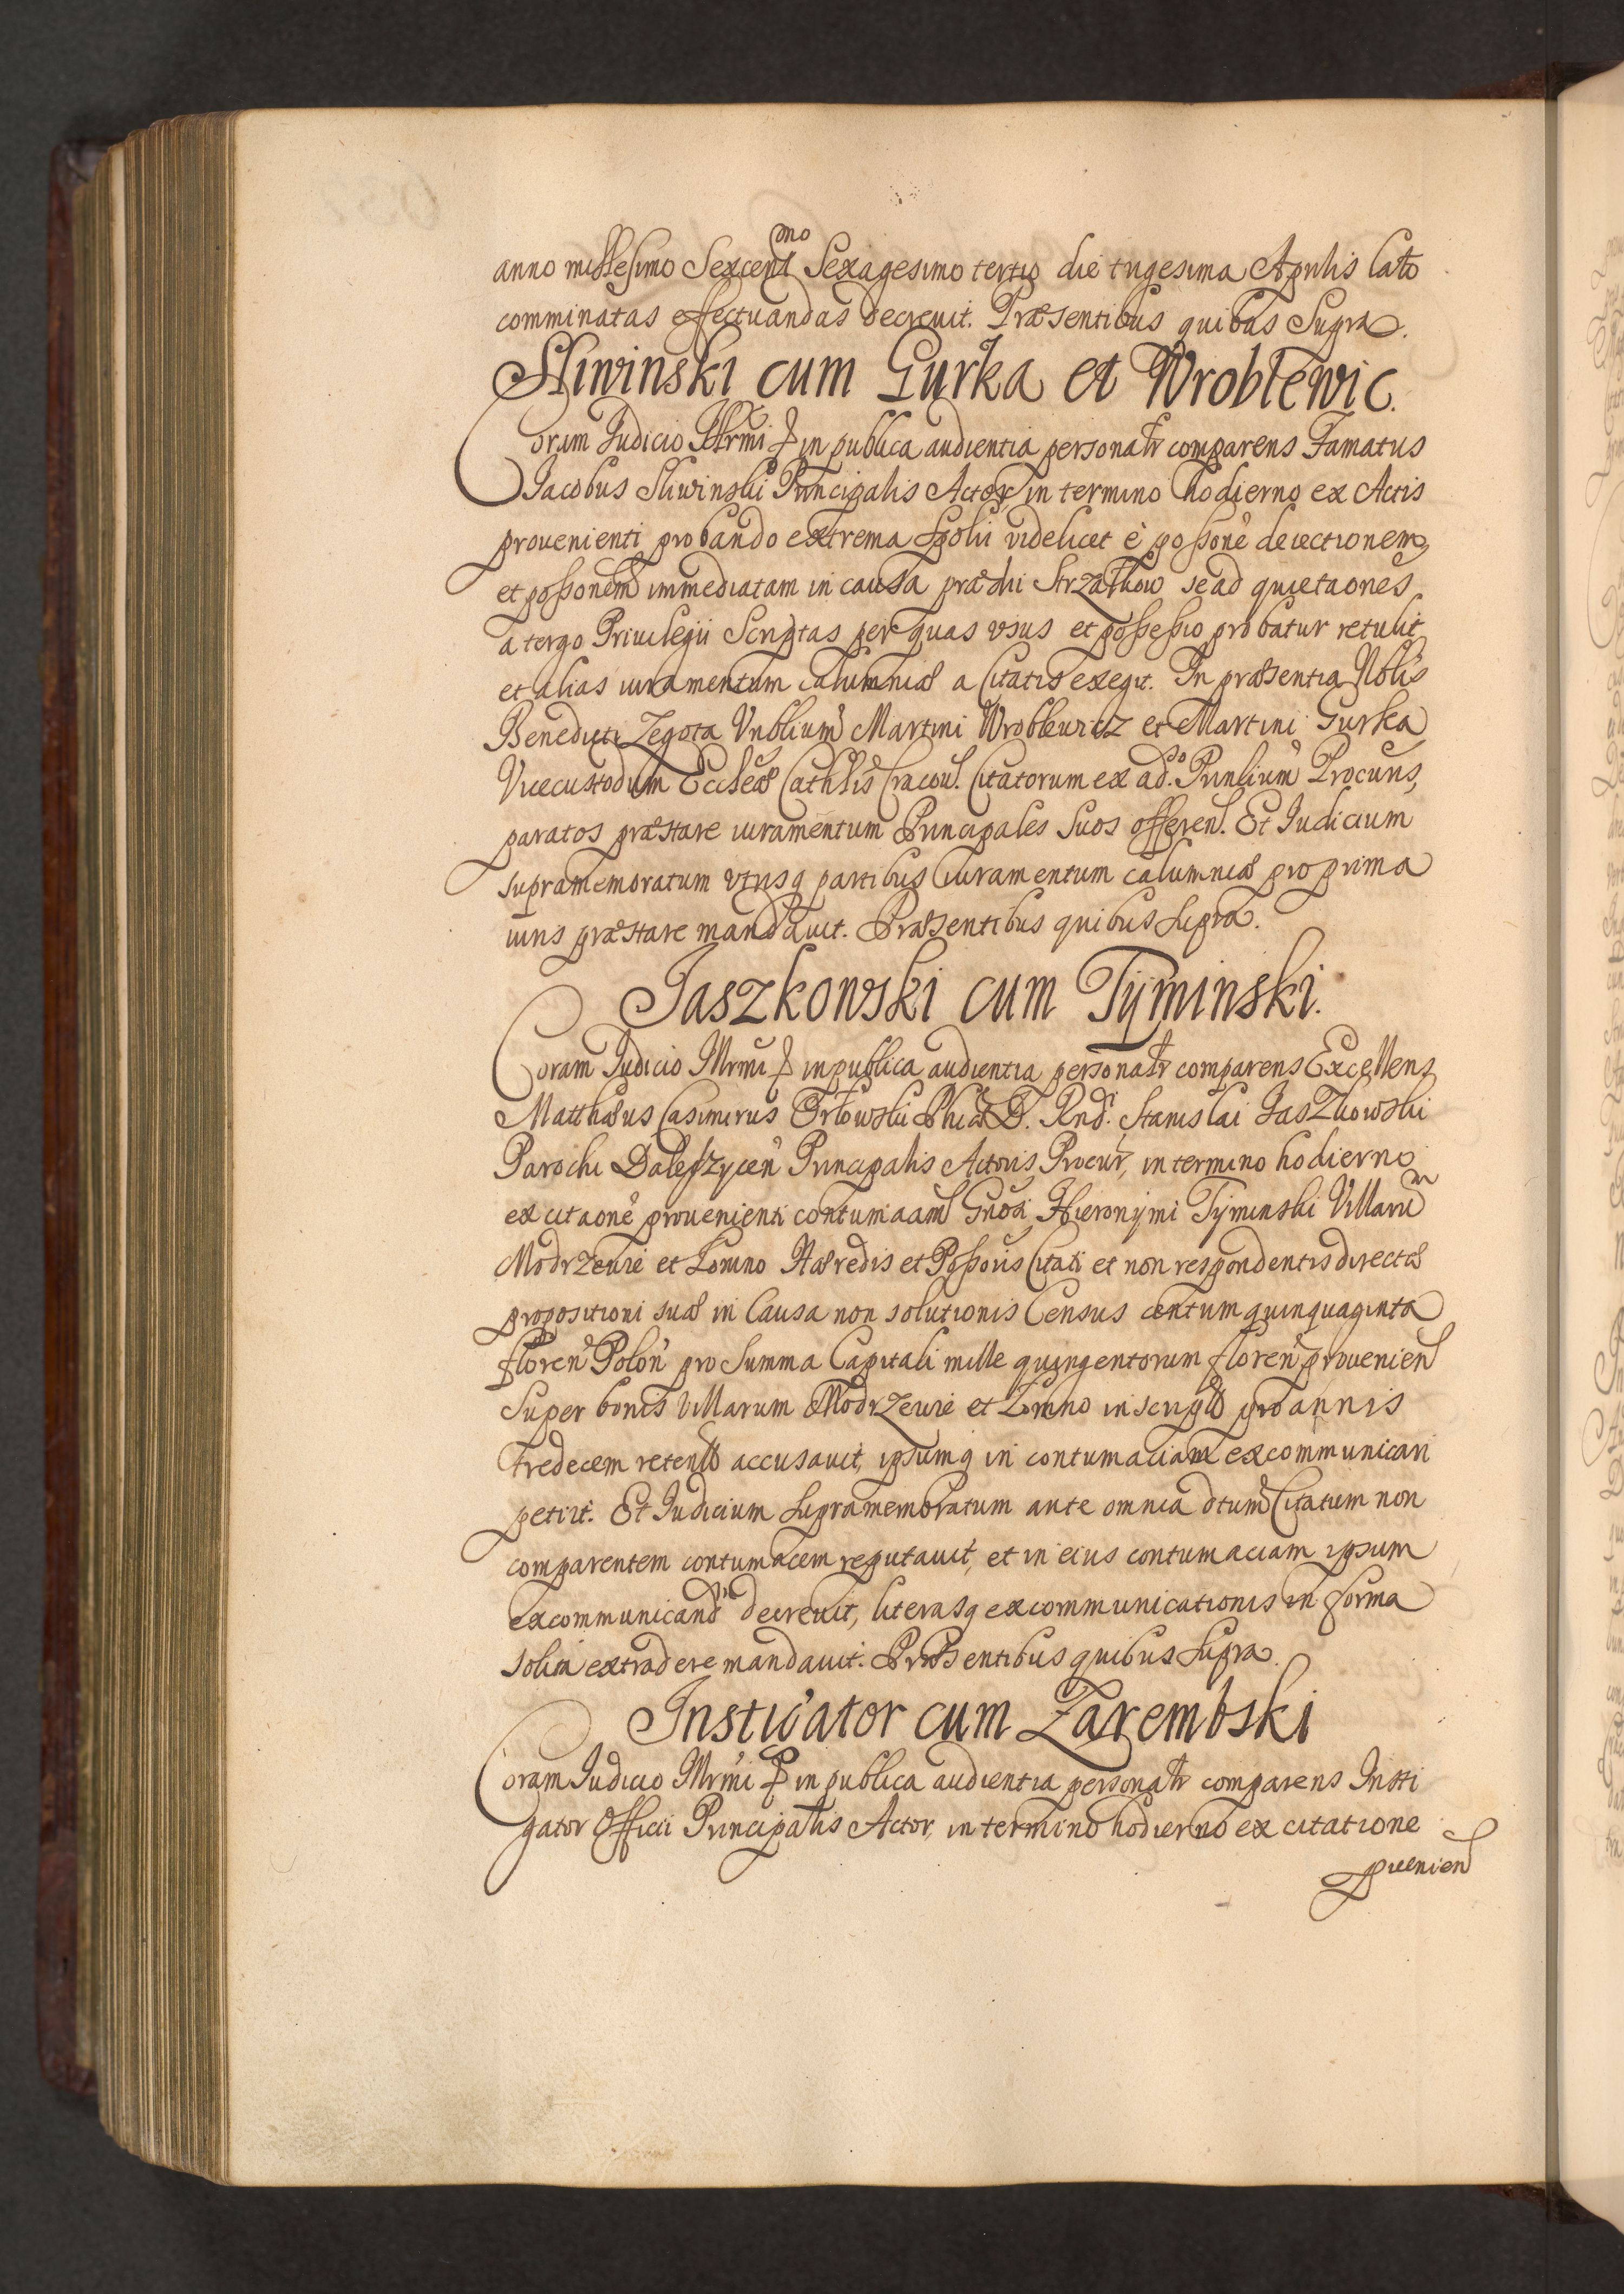 anno millesimo Sexcent͠mo Sexagesimo tertio die trigesima Aprilis lato
comminatas effectuandas decrevit. Præsentibus quibus Supra.
Sliwinski cum Gurka et Wroblewic.
Coram Judicio Illrmi in publica audientia personalr comparens Famatus
Jacobus Sliwinski Principalis Actor, in termino hodierno ex Actis
provenienti probando extrema spolii videlicet è possone deiectionem,
et possonem immediatam in causa prædii Strzałkow se ad quietaones
a tergo Privilegii Scriptas per quas vsus et possessio probatur retulit
et alias iuramentum calumniæ a Citatis exegit. In præsentia Nobis
Benedicti Zegota Vnblium Martini Wroblewicz et Martini Gurka
Vicecustodum Eccleæ Cathlis Cracou. Citatorum ex ad.so Prinlium Procuris,
paratos præstare iuramentum Principales suos offeren. Et Judicium
supramemoratum vtrisq partibus iuramentum calumniæ pro prima
iuris præstare mandavit. Præsentibus quibus Supra.
Jaszkowski cum Tyminski.
Coram Judicio Illrmi in publica audientia personalr comparens Excellens
Matthæus Casimirus Orłowski Phiæ D. Rndi Stanislai Jaszkowski
Parochi Daleszycen Principalis Actoris Procur, in termino hodierno
ex citaone provenienti contumaciam Gnosi Hieronymi Tyminski Villarum
Modrzewie et Lomno Hæredis et Possoris Citati et non respondentis directe
propositioni suæ in Causa non solutionis Census centum quinquaginta
floren Polon pro Summa Capitali mille quingentorum floren provenien
Super bonis Villarum Modrzewie et Lomno inscript pro annis
tredecem retent accusavit, ipsumq in contumaciam excommunicari
petiit. Et Judicium supramemoratum ante omnia dtum Citatum non
comparentem contumacem reputavit, et in eius contumaciam ipsum
excommunicand decrevit, literasq excommunicationis in forma
solita extradere mandavit. Præsentibus quibus Supra.
Instigator cum Zarembski
Coram Judicio Illrmi in publica audientia personalr comparens Insti
gator Officii Principalis Actor, in termino hodierno ex citatione
pvenien